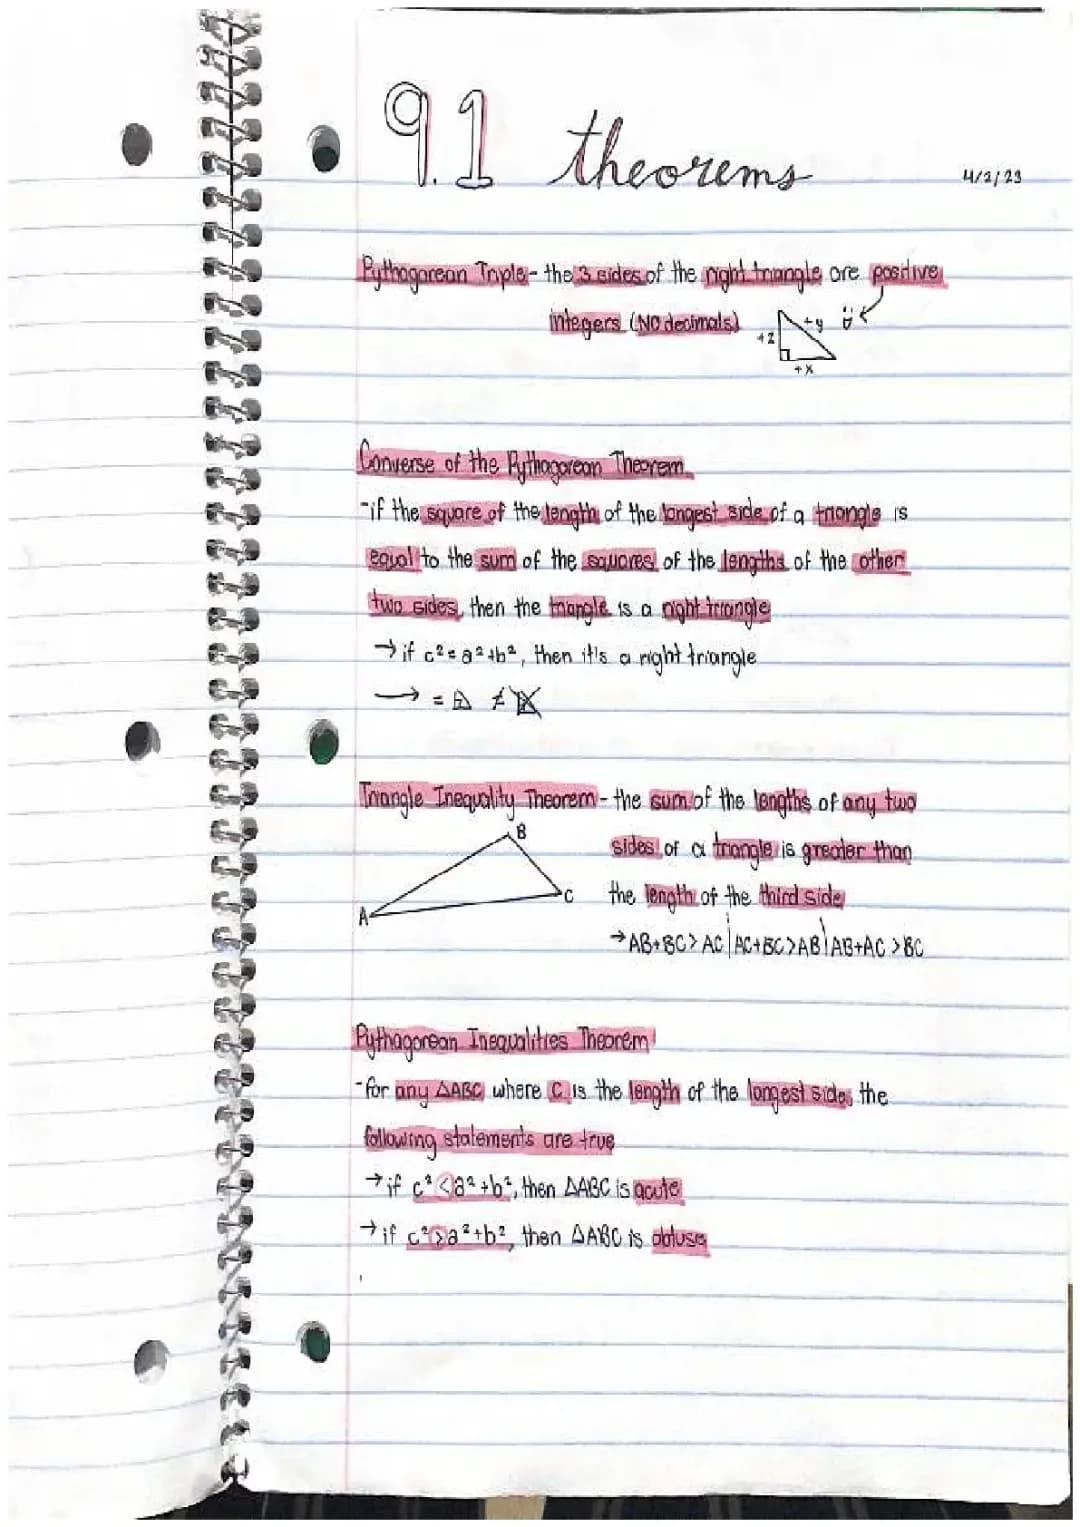 9.1 theorems 4/2/23
Pythagorean Triple - the 3 sides of the right triangle are positive
integers (NO decimals)
+z +y
+x
Converse of the Pythagorean Theorem
- if the square of the length of the longest side of a triangle is
equal to the sum of the squares of the lengths of the other
two sides, then the triangle is a right triangle
→ if c² = a² + b², then it's a right triangle
→ = ≠
Triangle Inequality Theorem - the sum of the lengths of any two
B
sides of a triangle is greater than
A C the length of the third side
→ AB+BC > AC | AC+BC > AB | AB+AC > BC
Pythagorean Inequalities Theorem
- for any △ABC where C is the length of the longest side, the
following statements are true
→ if c² < a² + b², then △ABC is acute
→ if c² > a² + b², then △ABC is obtuse